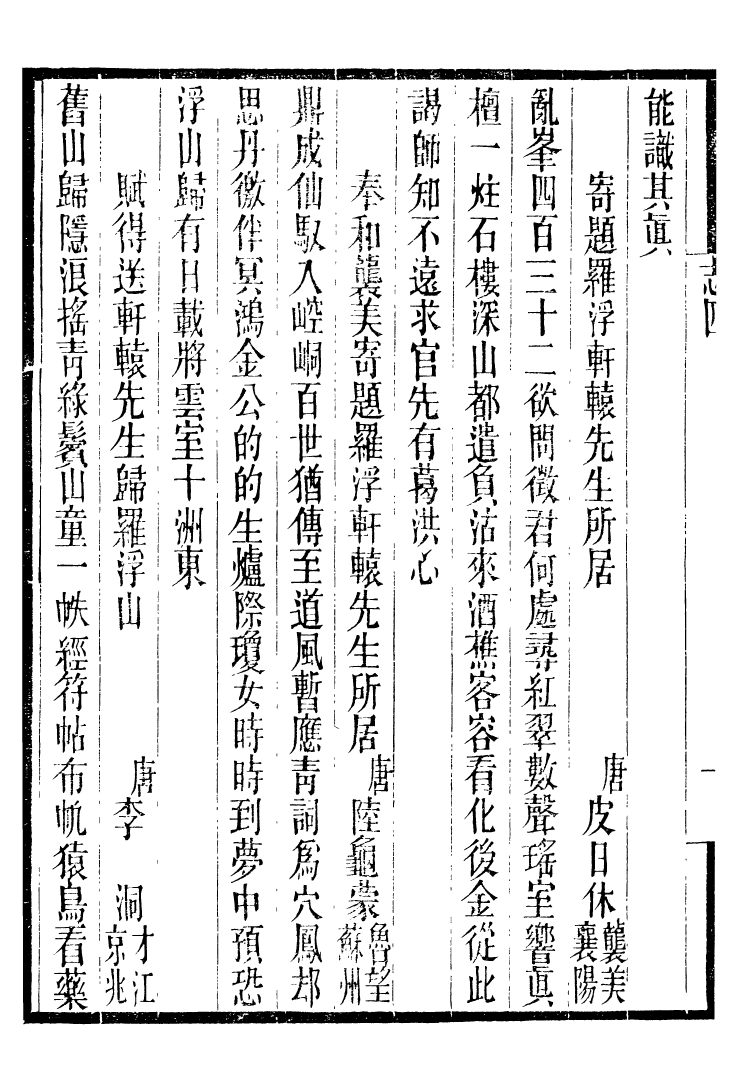 能識其眞
寄題羅浮軒轅先生所居　唐皮日休襲美襄陽
亂峯四百三十二欲問徵君何處尋紅翠數聲瑤室響眞
檀一炷石樓深山都遣負沽來酒樵客容看化後金從此
謁師知不遠求官先有葛洪心
奉和襲美寄題羅浮軒轅先生所居　唐陸龜蒙魯望蘇州
鼎成仙馭入崆峒百世猶傳至道風暫應青詞爲穴鳳却
思丹徼伴冥鴻金公的的生爐際瓊女時時到夢中預恐
浮山歸有日載將雲室十洲東
賦得送軒轅先生歸羅浮山　唐李洞才江京兆
舊山歸隱浪搖青綠鬢山童一帙經符帖布帆猿鳥看藥